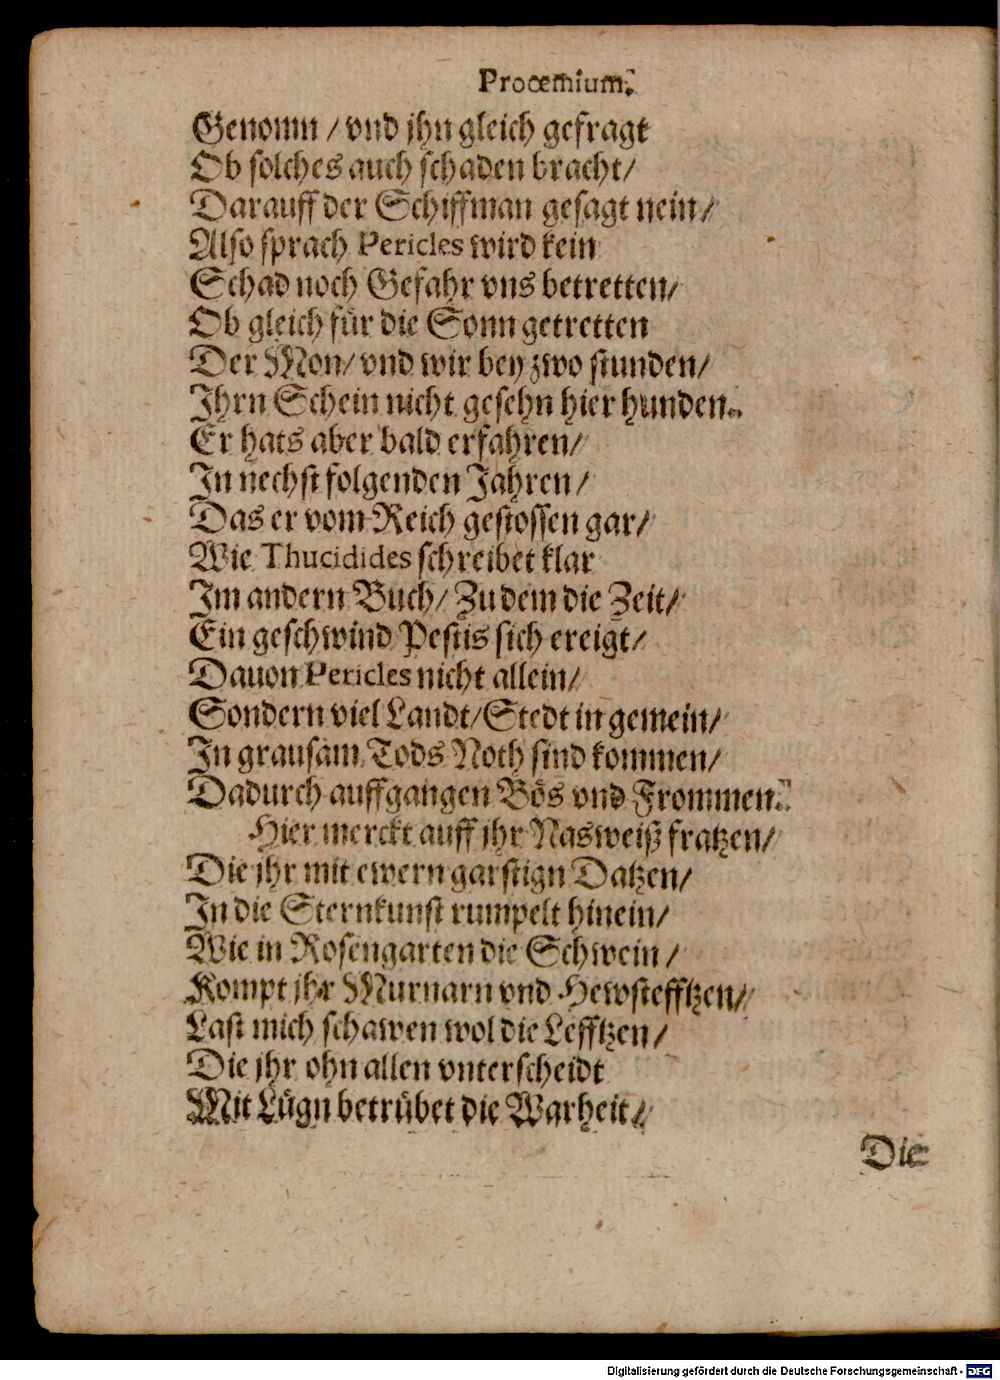 Procemium.
Genomn / vnd jhn gleich gefragt
Ob solches auch schaden bracht/
Darauff der Schiffman gesagt nein/
Also sprach Pericles wird kein
Schad noch Gefahr vns betretten/
Ob gleich für die Sonn getretten
Der Mon/ vnd wir bey zwo stunden/
Ihrn Schein nicht gesehn hier hunden.
Er hats aber bald erfahren/
In nechst folgenden Jahren/
Das er vom Reich gestossen gar/
Wie Thucidides schreibet klar
Im andern Buch/ Zu dem die Zeit/
Ein geschwind Pestis sich ereigt/
Dauon Pericles nicht allein/
Sondern viel Landt/ Stedt in gemein/
In grausam Tods Noth sind kommen/
Dadurch auffgangen Bös vnd Frommen.
Hier merckt auff jhr Nasweiß fratzen/
Die jhr mit ewern garstign Datzen/
In die Sternkunst rumpelt hinein/
Wie in Rosengarten die Schwein /
Kompt jhr Murnarn vnd Hewstefftzen/
Last mich schawen wol die Lefftzen/
Die jhr ohn allen vnterscheidt
Mit Lügn betrübet die Warheit/
Die
Digitalisierung gefördert durch die Deutsche Forschungsgemeinschaft - DFG